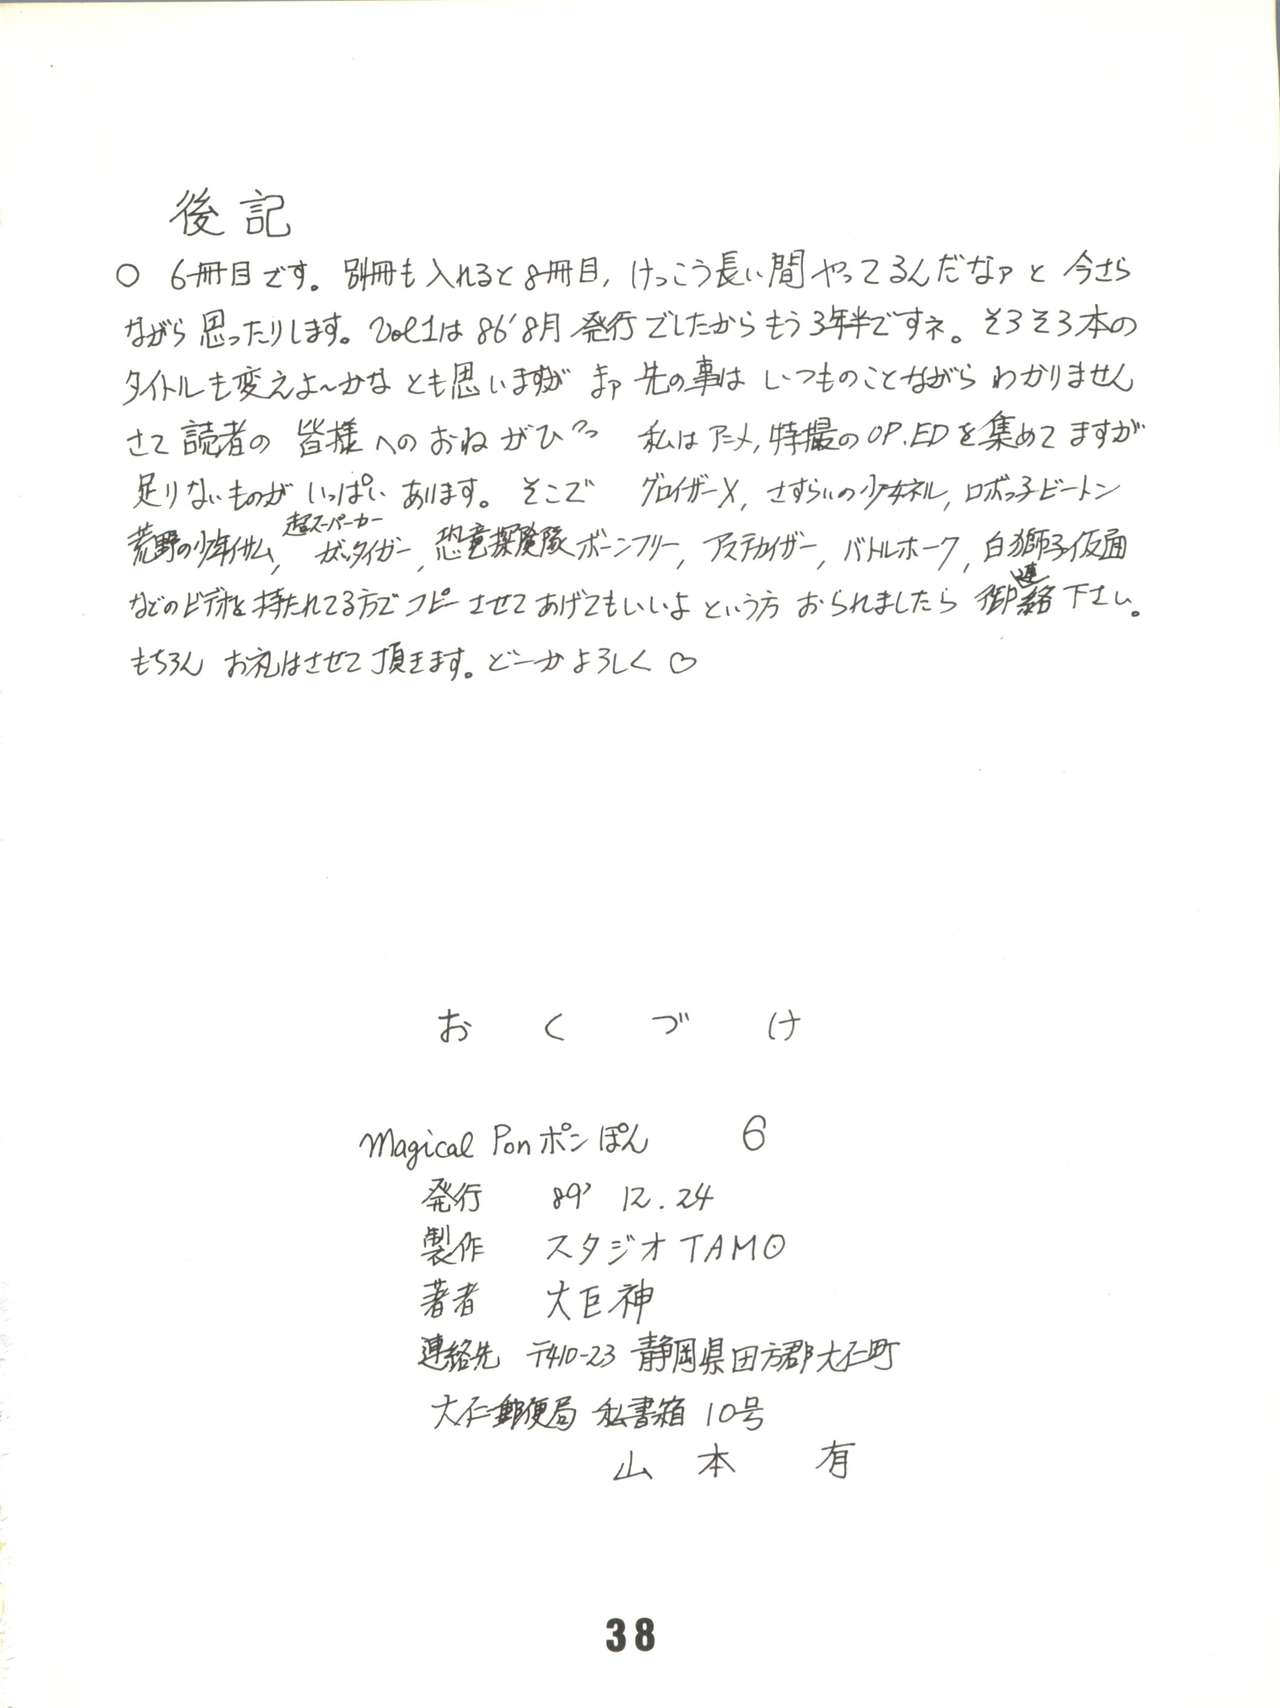 後記
○ 6冊目です。別冊も入れると8冊目，けっこう長い間やってるんだなァと今さら
ながら思ったりします。Vol1は86'8月発行でしたからもう3年半ですネ。そろそろ本の
タイトルも変えよ〜かなとも思いますが まァ先の事は いつものことながら わかりません
さて読者の 皆様へのおねがひ 私はアニメ，特撮のOP.EDを集めてますが
足りないものが いっぱい あります。そこで グロイザーX，さすらいの少女ネル，ロボっ子ビートン
荒野の少年イサム，超スーパーカー ガッタイガー，恐竜探険隊ボーンフリー，アステカイザー，バトルホーク，白獅子仮面
などのビデオを持たれてる方でコピーさせてあげてもいいよ という方 おられましたら 御連絡下さい。
もちろん お礼はさせて頂きます。どーかよろしく♡
おくづけ
Magical Pon ポン ぽん 6
発行 89' 12.24
製作 スタジオTAMO
著者 大巨神
連絡先 〒410-23 静岡県田方郡大仁町
大仁郵便局 私書箱 10号
山本 有
38